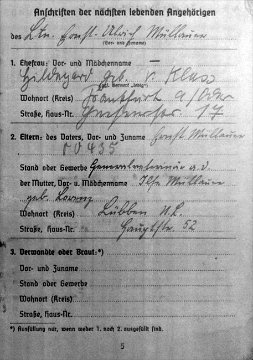 Anschriften der nächsten lebenden Angehörigen
des Ltn. Horst Ulrich Müllauer
(Vor- und Zuname)
1. Ehefrau: Vor- und Mädchenname
Hildegard geb. v. Klass
Wohnort (Kreis) Frankfurt a/Oder
Straße, Haus-Nr. 17
2. Eltern: des Vaters, Vor- und Zuname Horst Müllauer
Stand oder Gewerbe a.d.
der Mutter, Vor- u. Mädchenname Ilse Müllauer
geb. Lorenz
Wohnort (Kreis) Lübben N.L.
Straße, Haus-Nr. Hauptstr. 52
3. Verwandte oder Braut:*)
Vor- und Zuname
Stand oder Gewerbe
Wohnort (Kreis)
Straße, Haus-Nr.
*) Ausfüllung nur, wenn weder 1. noch 2. ausgefüllt sind.
5